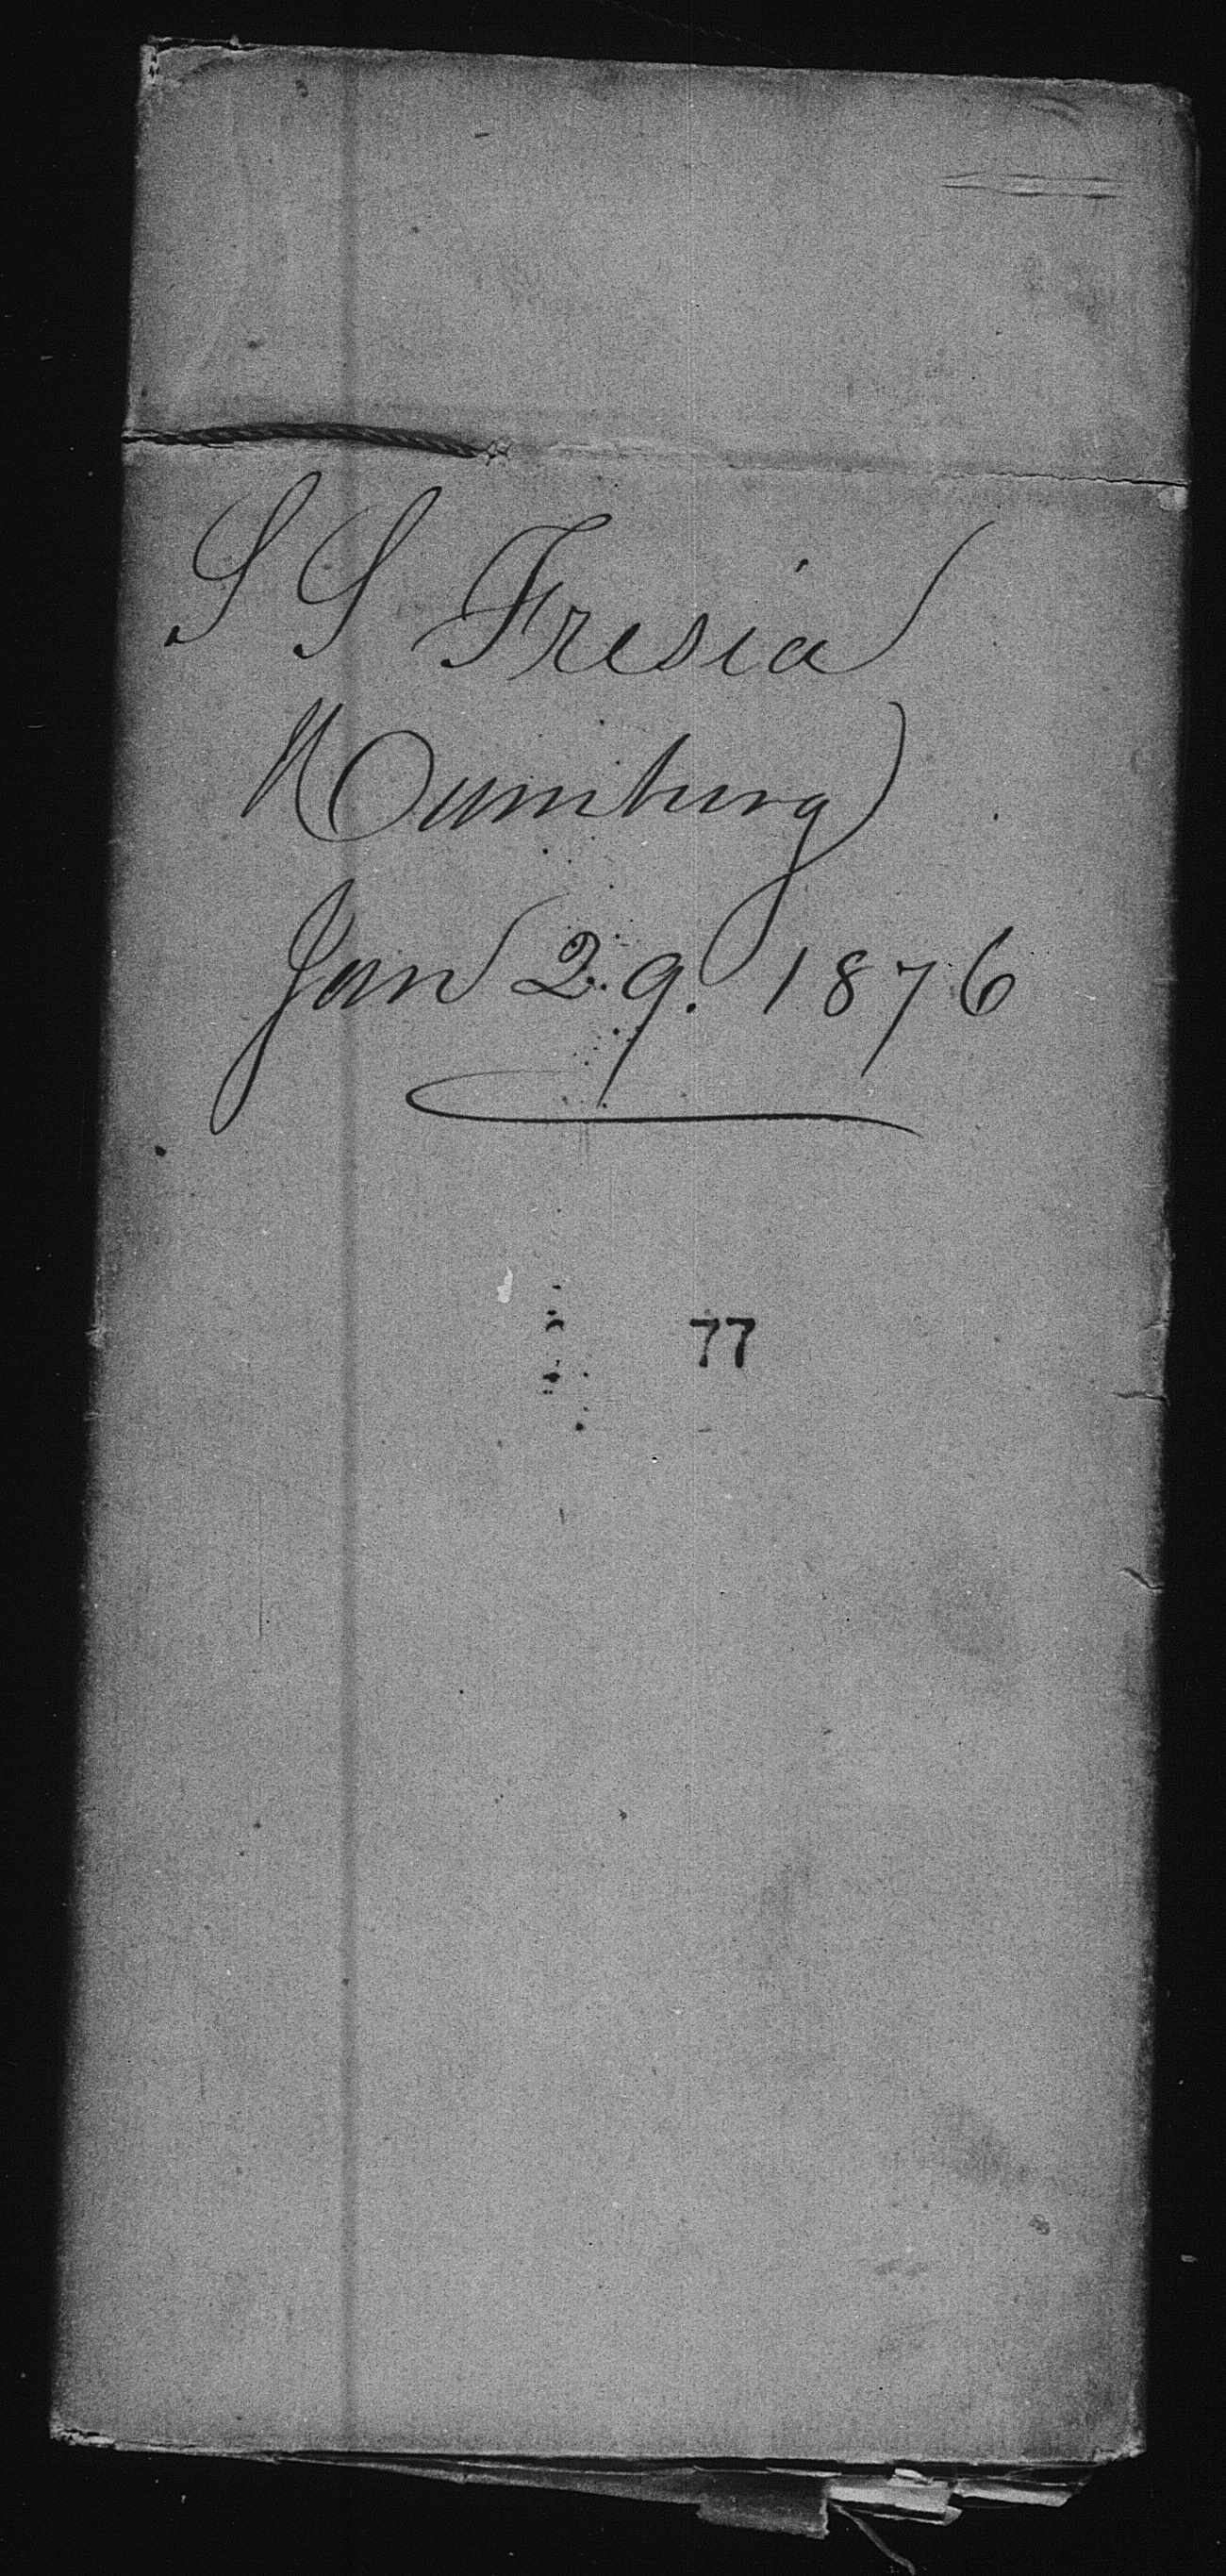 S S Fresia
Hamburg
Jan 29. 1876
77